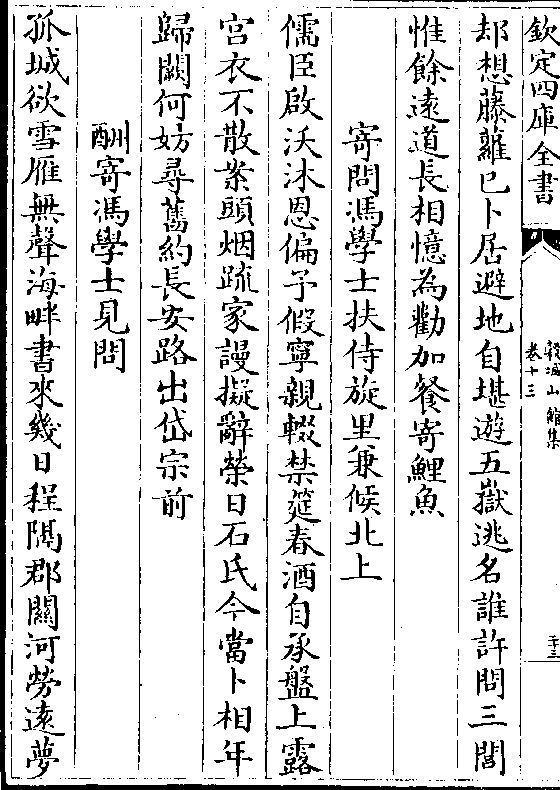 欽定四庫全書
穀城山館集
卷十三
却想藤蘿已卜居避地自堪遊五嶽逃名誰許問三閭
惟餘遠道長相憶為勸加餐寄鯉魚
寄問馮學士扶侍旋里兼候北上
儒臣啟沃沐恩偏予假寧親輟禁筵春酒自承盤上露
宮衣不散案頭烟疏家謾擬辭榮日石氏今當卜相年
歸闕何妨尋舊約長安路出岱宗前
酬寄馮學士見問
孤城欲雪雁無聲海畔書來幾日程隅郡關河勞遠夢